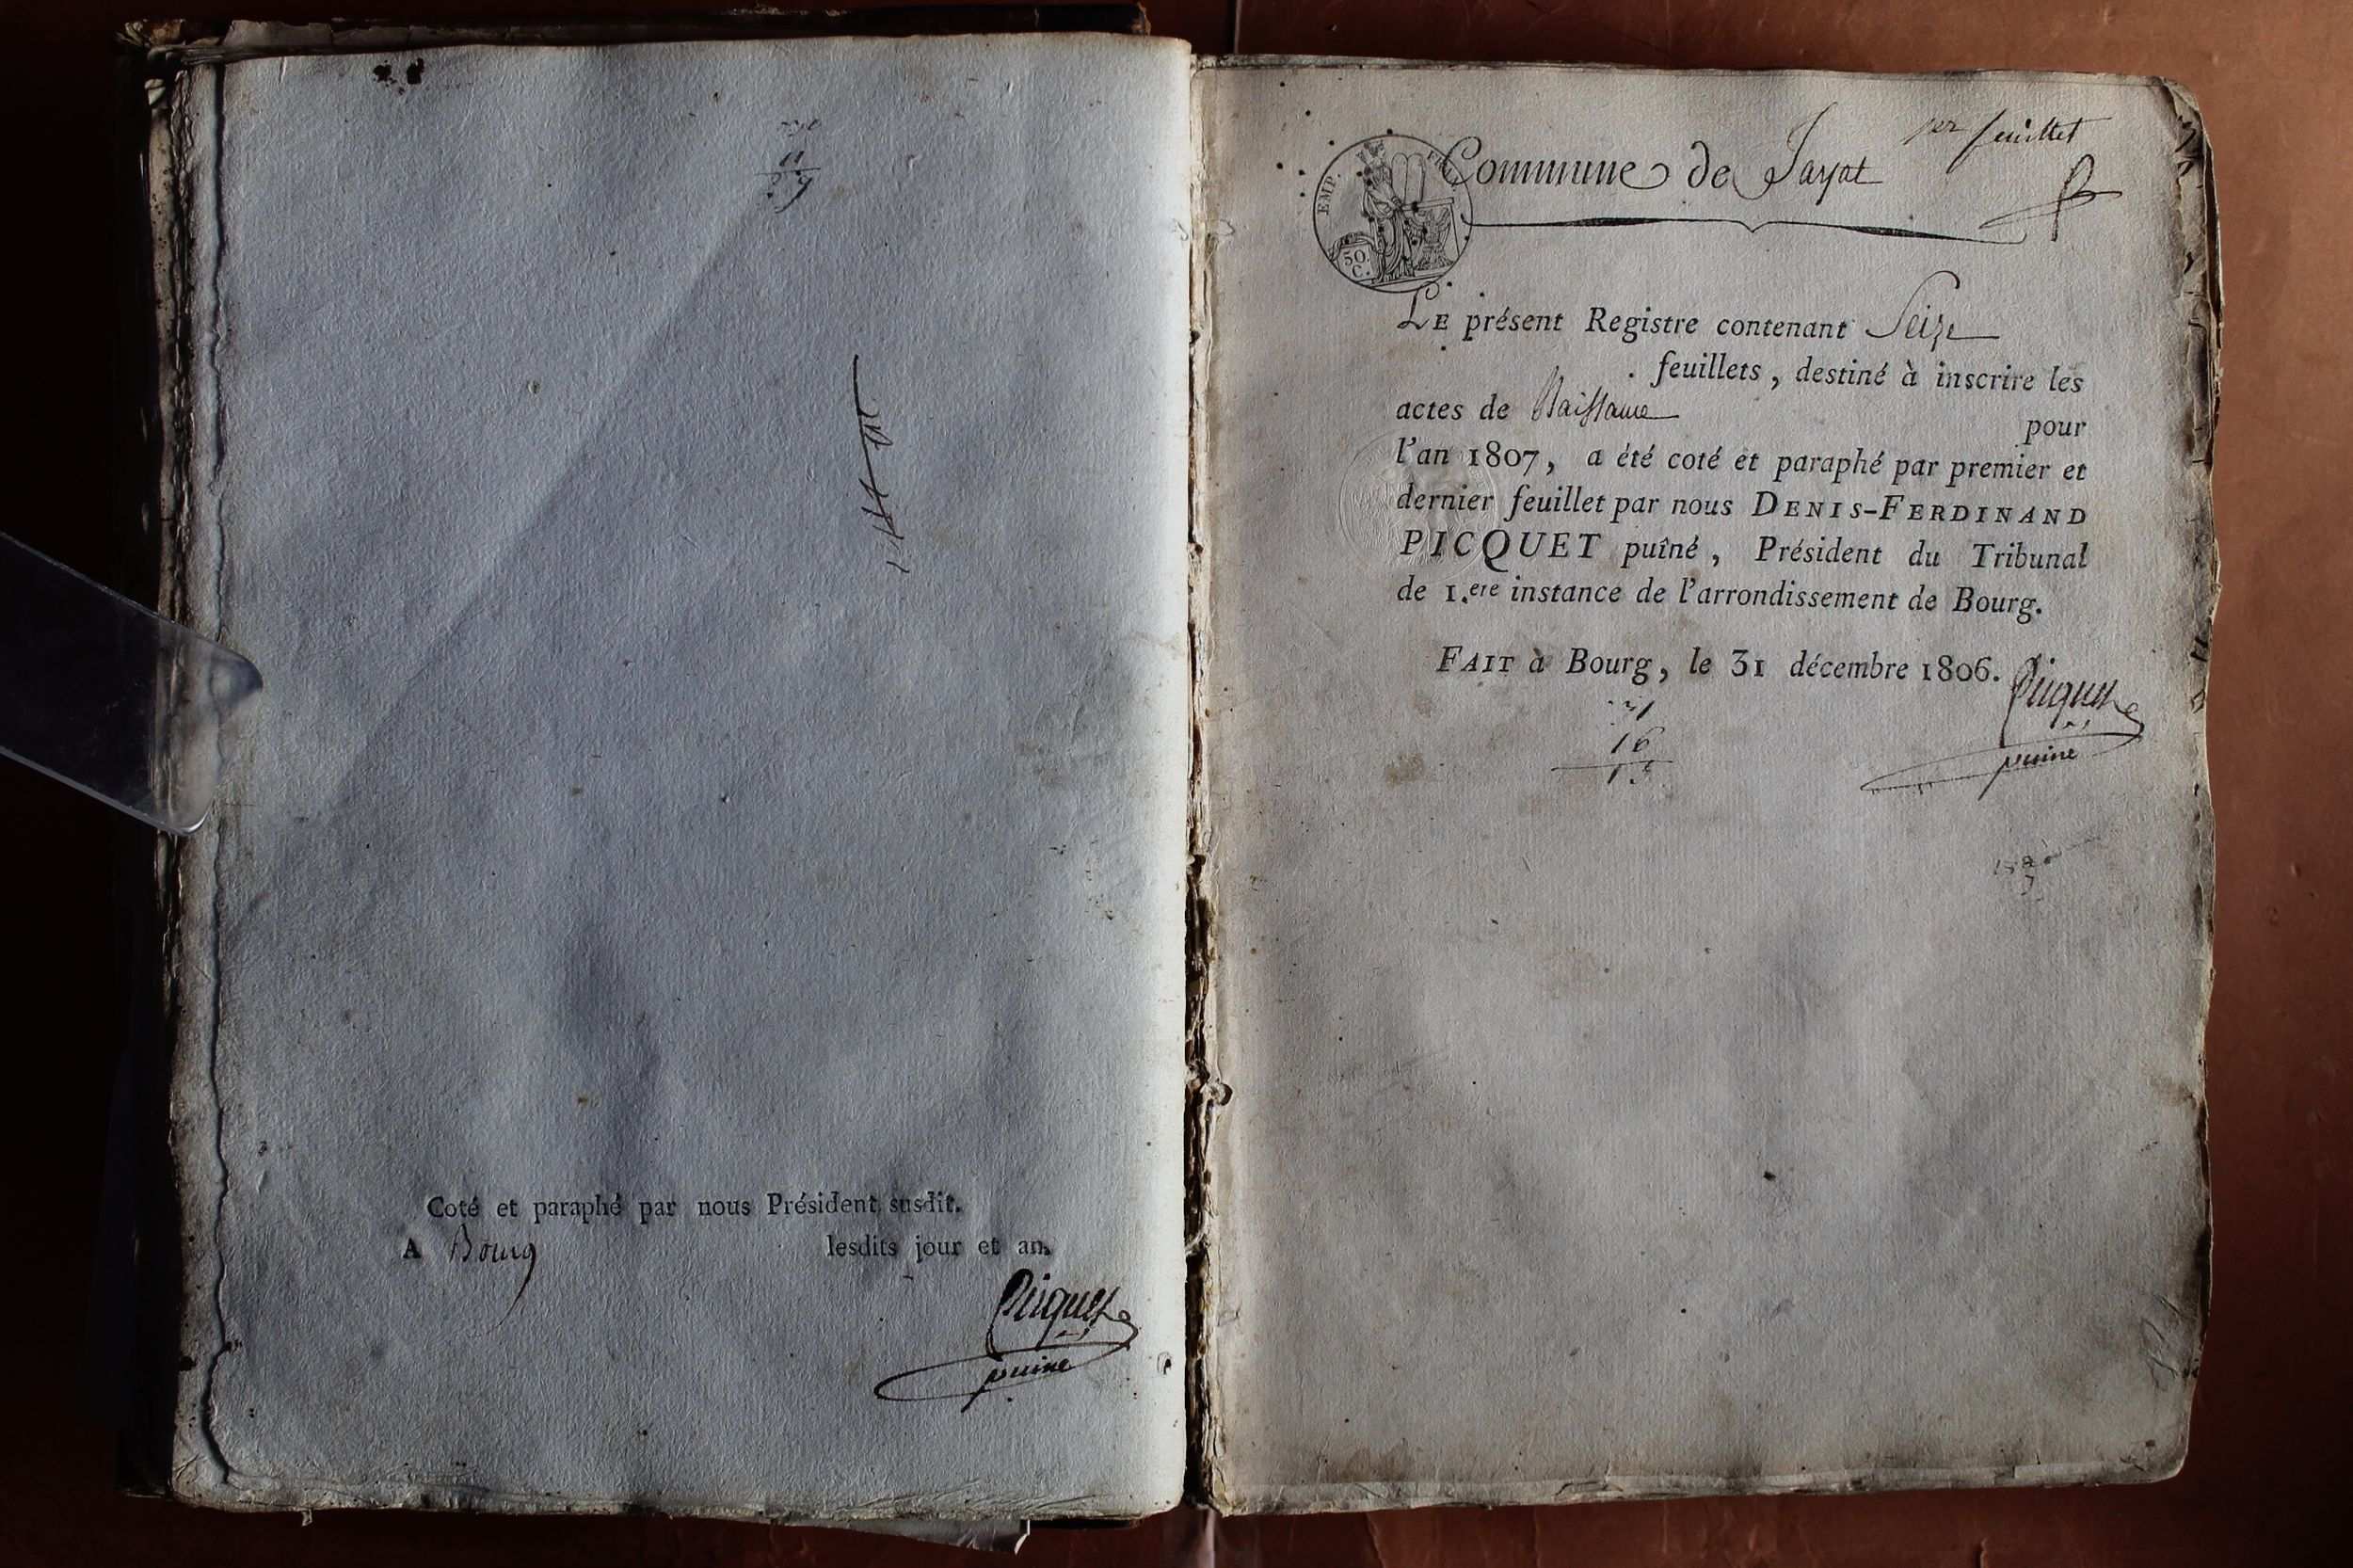 Coté et paraphé par nous Président susdit.
A Bourg lesdits jour et an.
Picquet
puiné
per feuillet
Commune de Jayat
EMP. FR
50.
C.
LE présent Registre contenant Seize
feuillets, destiné à inscrire les
actes de Naissance
pour
l'an 1807, a été coté et paraphé par premier et
dernier feuillet par nous DENIS-FERDINAND
PICQUET puîné, Président du Tribunal
de 1.ere instance de l'arrondissement de Bourg.
FAIT à Bourg, le 31 décembre 1806.
Picquet
puiné
16